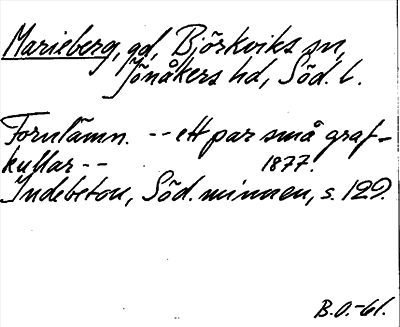 Marieberg, gd, Björkviks sn,
Jönåkers hd, Söd. l.
Fornlämn. -- ett par små graf-
kullar -- 1877.
Indebetou, Söd. minnen, s. 129.
B.O.-61.